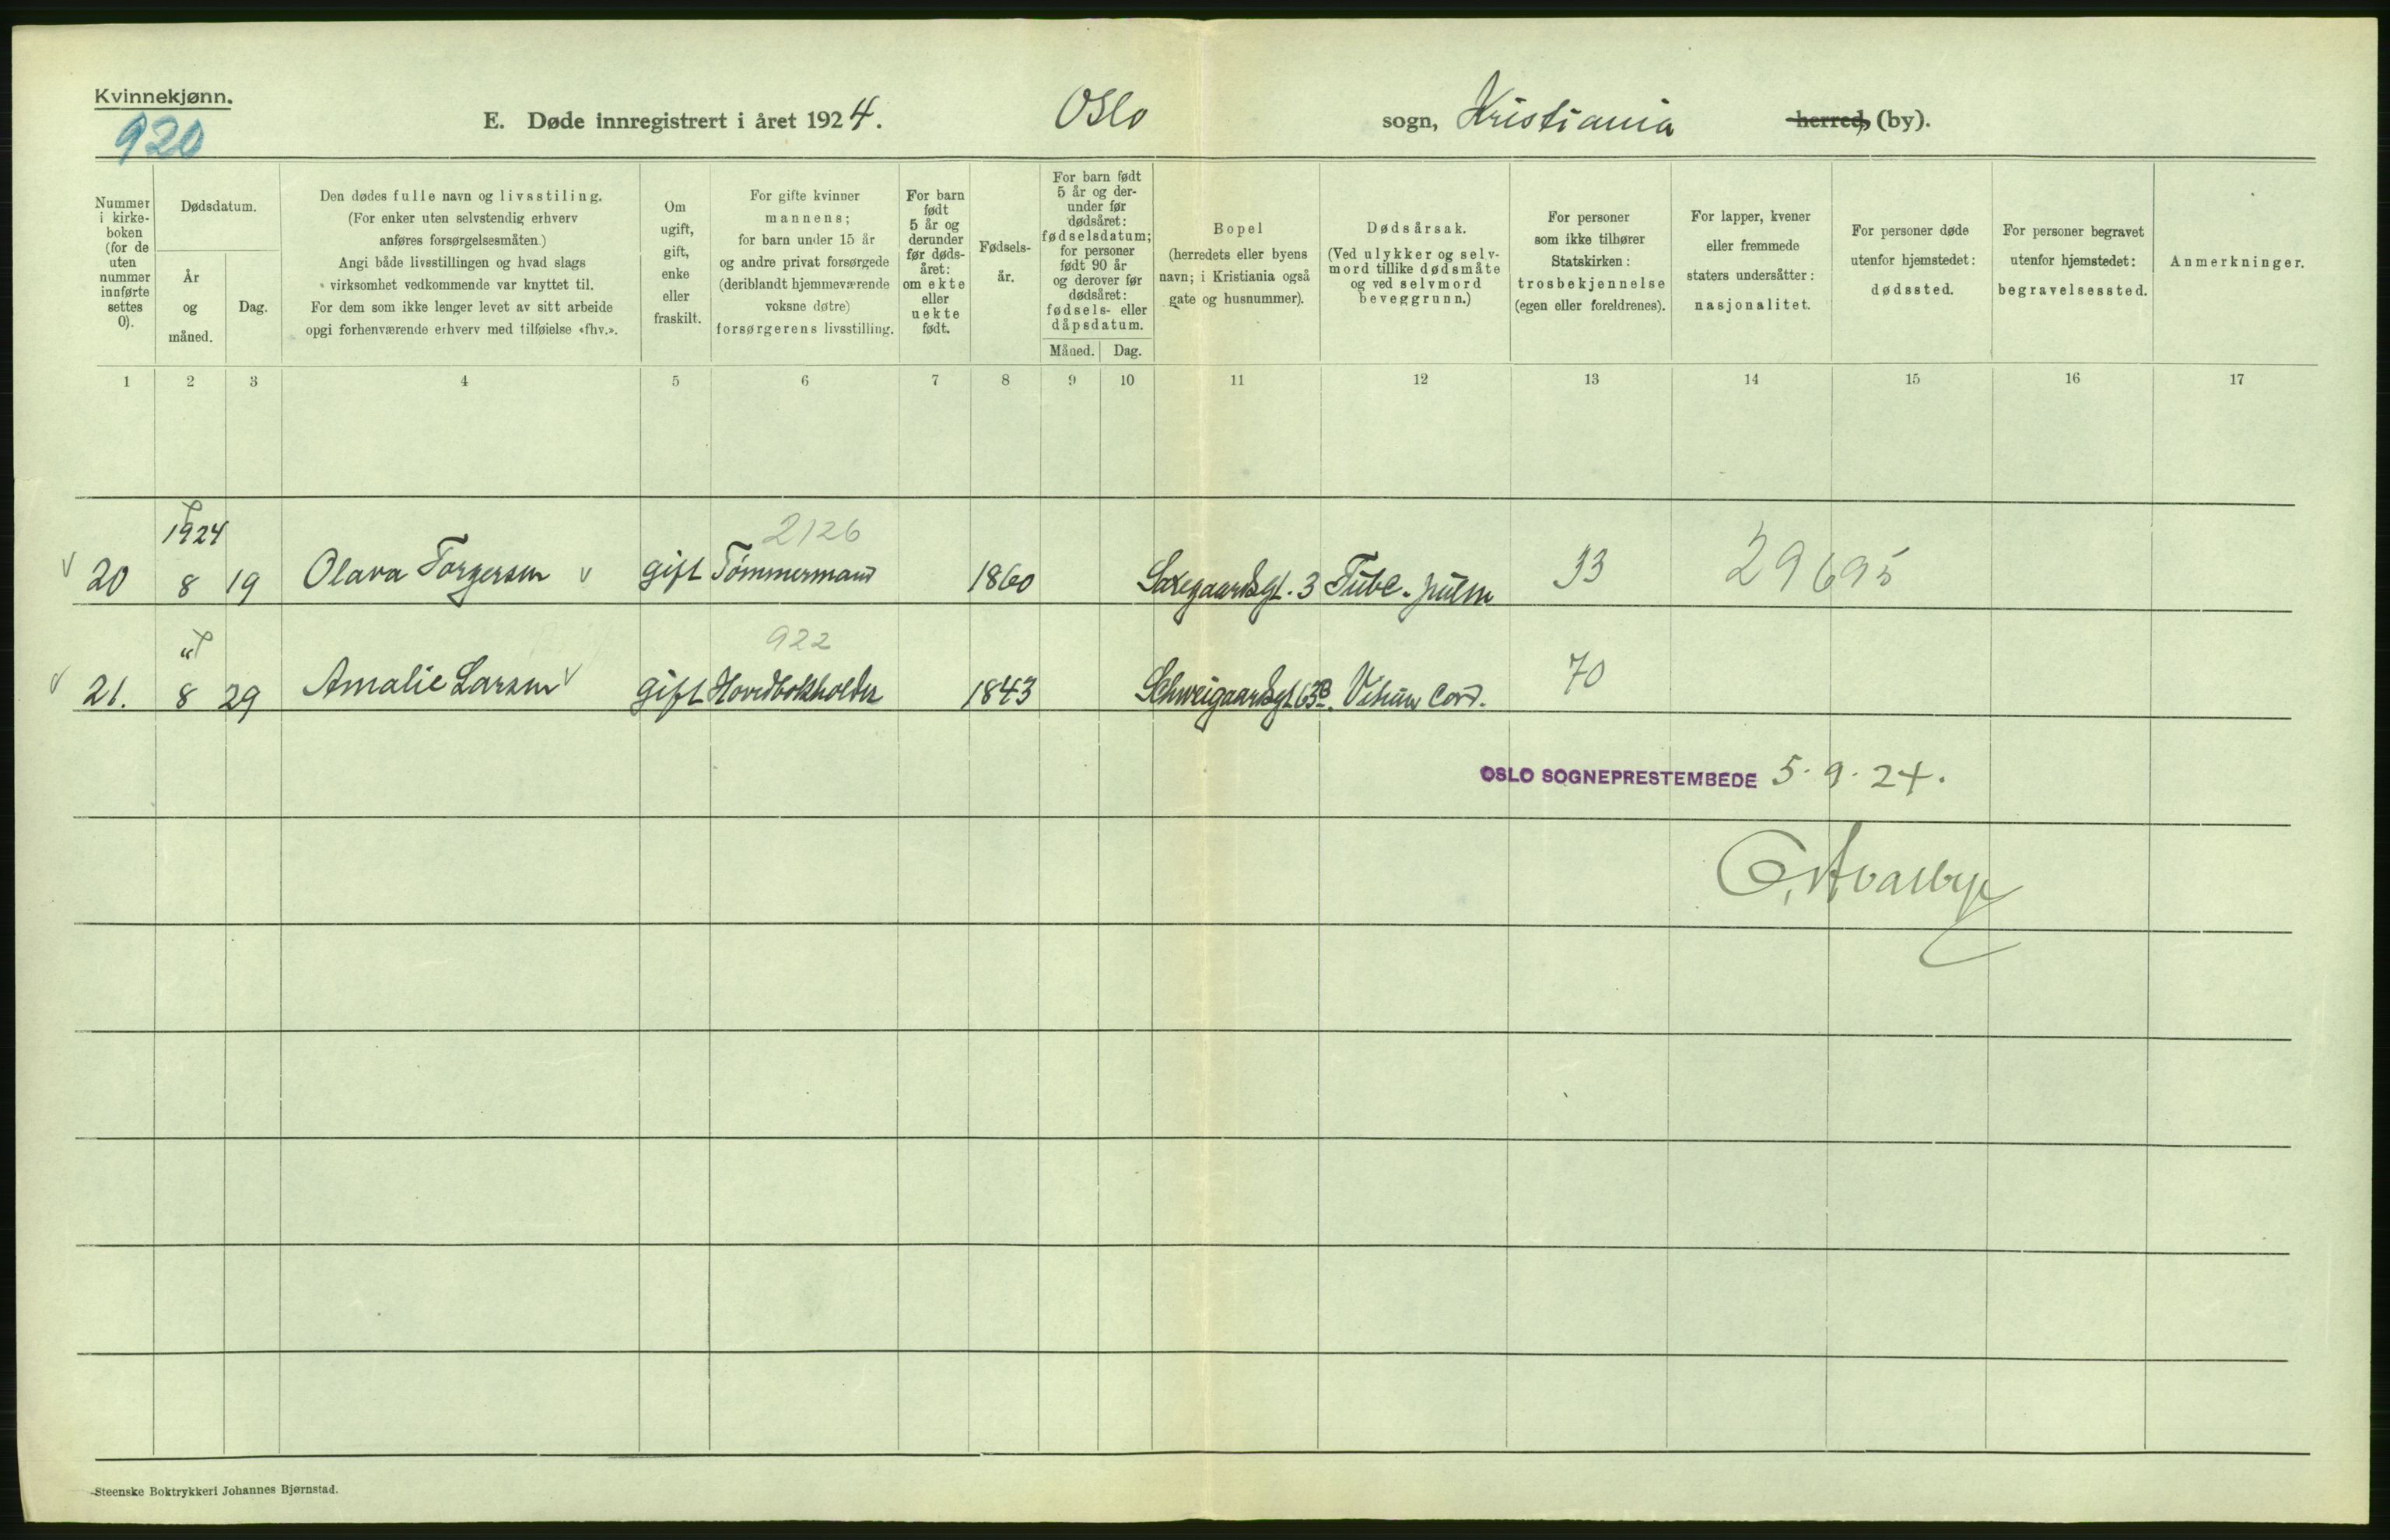 Kvinnekjønn.
920
E. Døde innregistrert i året 1924. Oslo sogn, Kristiania herred, (by).
Nummer i kirkeboken (for de uten nummer innførte settes 0).
Dødsdatum.
År og måned.
Dag.
Den dødes fulle navn og livsstiling.
(For enker uten selvstendig erhverv
anføres forsørgelsesmåten.)
Angi både livsstillingen og hvad slags
virksomhet vedkommende var knyttet til.
For dem som ikke lenger levet av sitt arbeide
opgi forhenværende erhverv med tilføielse «fhv.».
Om
ugift,
gift,
enke
eller
fraskilt.
For gifte kvinner
mannens;
for barn under 15 år
og andre privat forsørgede
(deriblandt hjemmeværende
voksne døtre)
forsørgerens livsstilling.
For barn
født
5 år og
derunder
før døds-
året:
om ekte
eller
uekte
født.
Fødsels-
år.
For barn født
5 år og der-
under før
dødsåret:
fødselsdatum;
for personer
født 90 år
og derover før
dødsåret:
fødsels- eller
dåpsdatum.
Måned. Dag.
Bopel
(herredets eller byens
navn; i Kristiania også
gate og husnummer).
Dødsårsak.
(Ved ulykker og selv-
mord tillike dødsmåte
og ved selvmord
beveggrunn.)
For personer
som ikke tilhører
Statskirken:
trosbekjennelse
(egen eller foreldrenes).
For lapper, kvener
eller fremmede
staters undersåtter:
nasjonalitet.
For personer døde
utenfor hjemstedet:
dødssted.
For personer begravet
utenfor hjemstedet:
begravelsessted.
Anmerkninger.
1 2 3 4 5 6 7 8 9 10 11 12 13 14 15 16 17
1924 2126
20 8 19 Olava Torgersen gift Tømmermand 1860 Saxegaardsgt. 3 Tubc. pulm 33 29695
" 922
21. 8 29 Amalie Larsen gift Hovedbokholder 1843 Schweigaardsgt 63B. Vitium Cord. 70
OSLO SOGNEPRESTEMBEDE 5.9.24.
Steenske Boktrykkeri Johannes Bjørnstad.